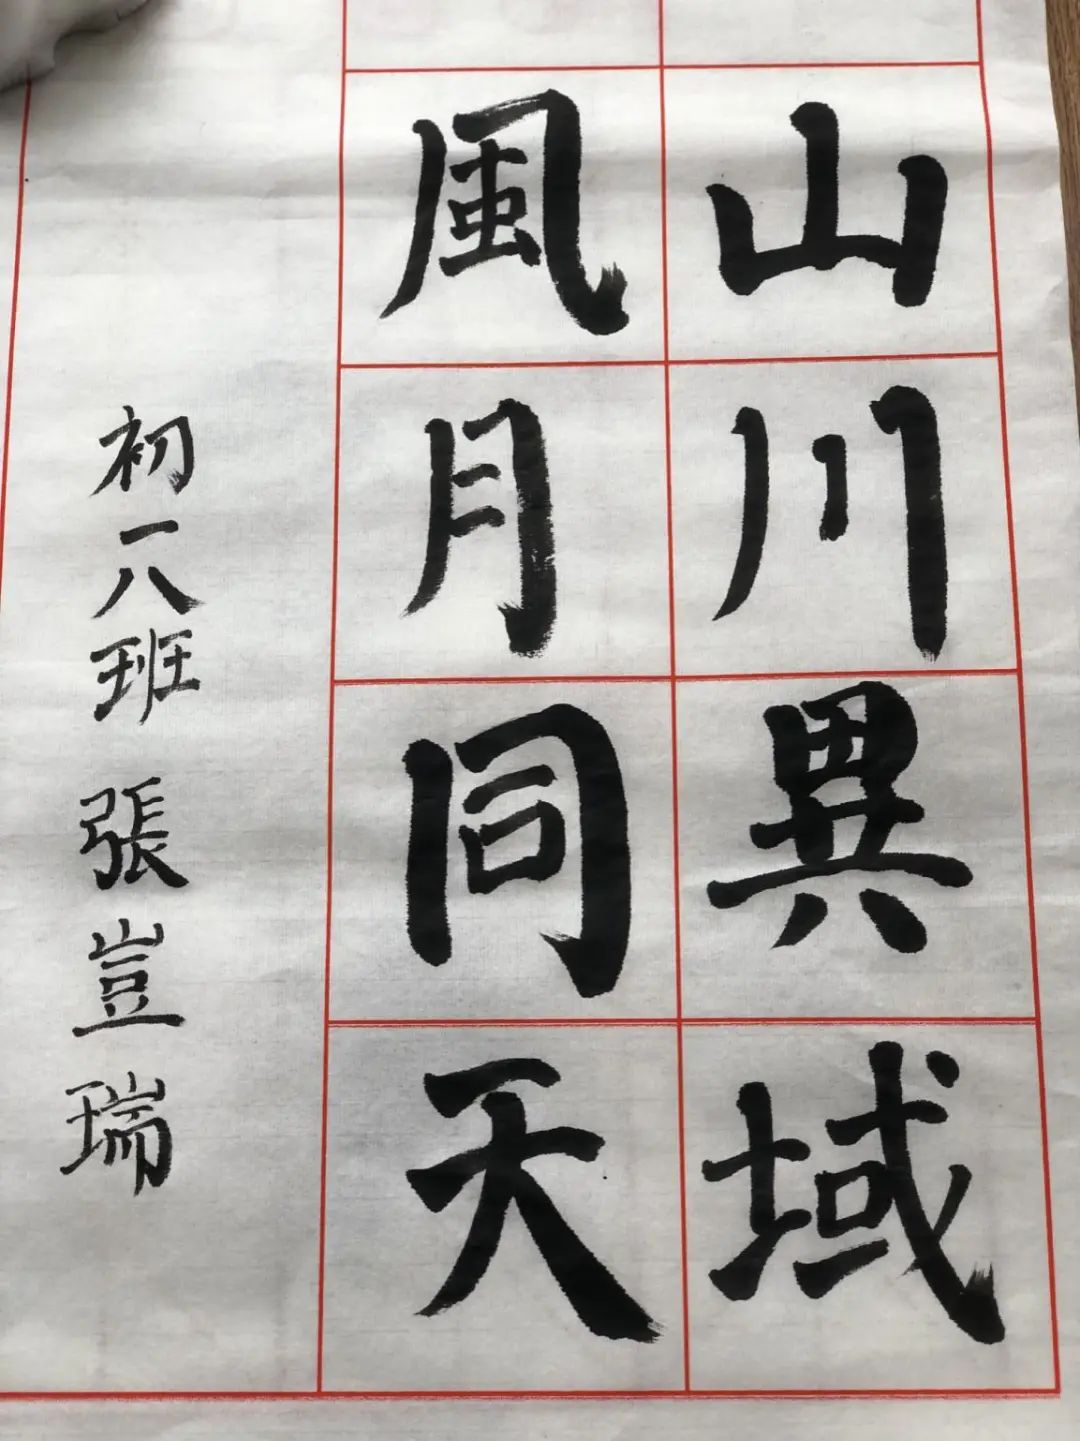 山川異域
風月同天
初一八班 張豈瑞